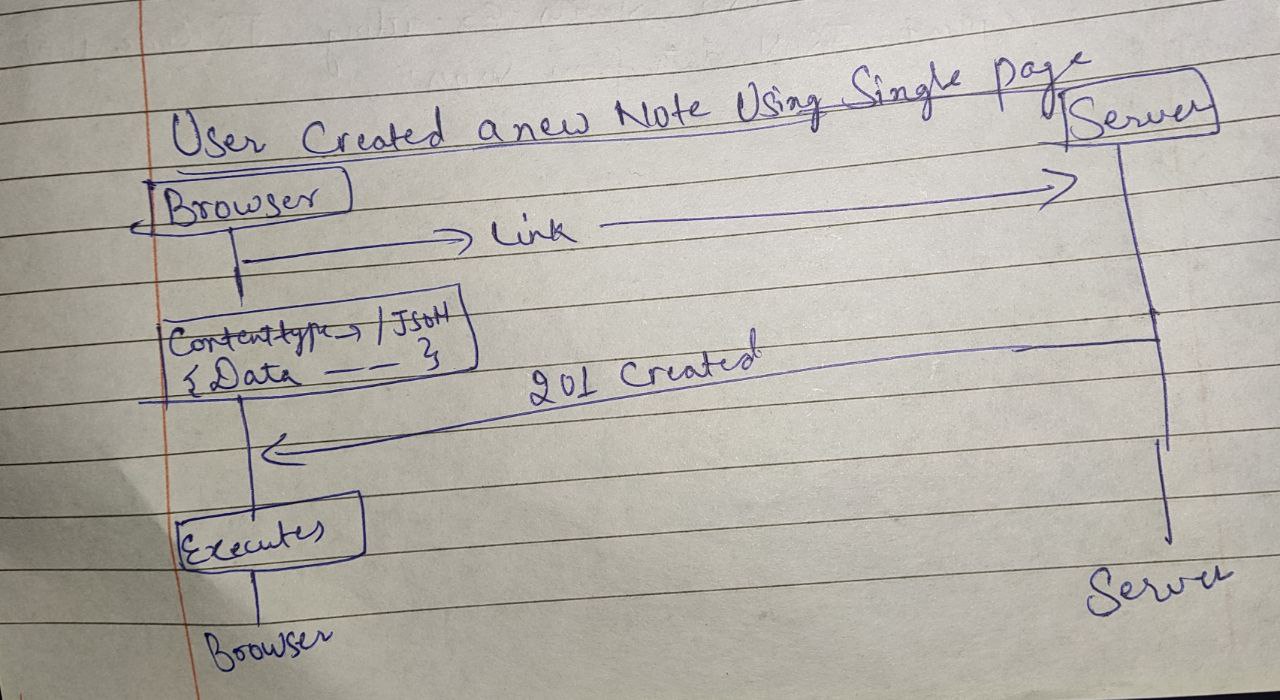 User Created a new Note Using Single page
Server
Browser
Link
Content type → / JSON
{ Data —— }
201 Created
Executes
Server
Browser